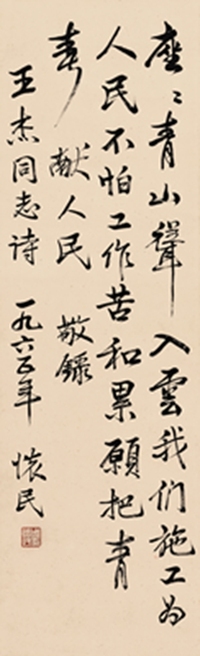 座〻青山聳入雲我们施工为
人民不怕工作苦和累願把青
春献人民 敬録
王杰同志诗 一九六五年 懷民